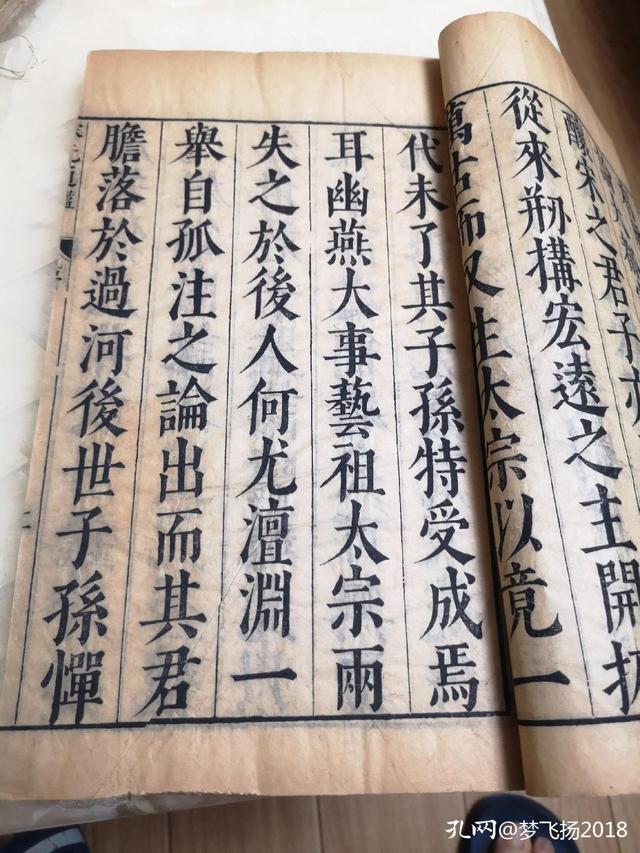 酸宋之君子
從來剏構宏遠之主開
萬古而又生太宗以竟一
代未了其子孫特受成焉
耳幽燕大事藝祖太宗兩
失之於後人何尤澶淵一
舉自孤注之論出而其君
膽落於過河後世子孫憚
孔网@梦飞扬2018